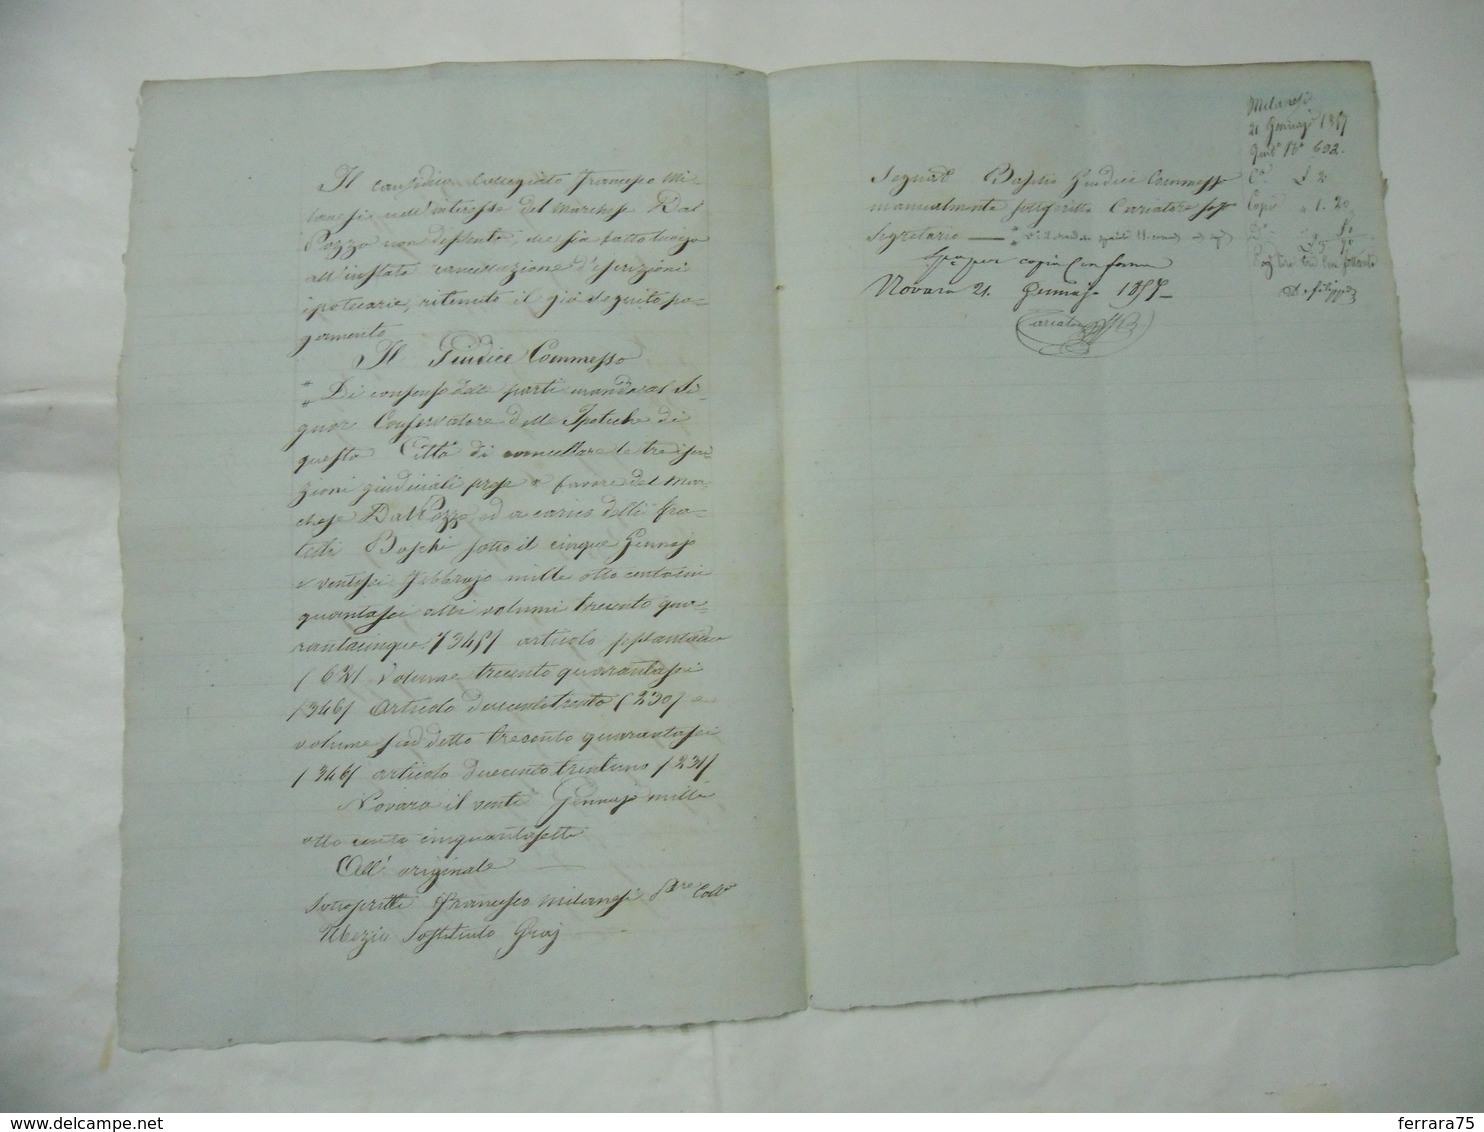 Il causidico Collegiato Francesco Mi-
lanesi nell'interesse del Marchese Dal
Pozzo non dissente, che sia fatto luogo
all'instata cancellazione d'iscrizioni
ipotecarie, ritenuto il già seguito pa-
gamento
Il Giudice Commesso
Di consenso delle parti manda al Si-
gnor Conservatore delle Ipoteche di
questa Città di cancellare le tre iscri-
zioni giudiziali prese a favore del Mar-
chese Dal Pozzo, ed a carico delli fra-
telli Boschi sotto il cinque Gennajo
e ventisei Febbrajo mille otto centocin
quantasei alli volumi trecento qua-
rantacinque /345/ articolo
/62/ volume trecento quarantasei
/346/ articolo duecentotrenta /230/ e
volume suddetto trecento quarantasei
/346/ articolo duecento trentuno /231/
Novara il venti Gennajo mille
otto cento cinquantasette
All'originale
Sottoscritti Francesco Milanesi
Sostituito
Segnato Giudice Commesso
manualmente sottoscritto Cariatore
Segretario
Per copia conforme
Novara 21. Gennajo 1857
Cariatore
Milanesi
21 Gennajo 1857
602.
£ 2
Copia " 1. 20
ferrara75